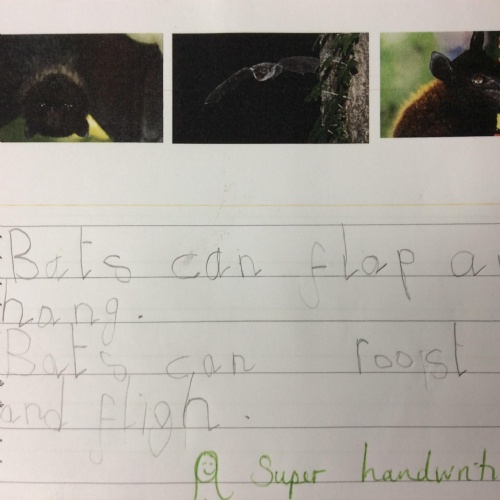 Bats can flap an
hang.
Bats can roost
and fligh.
Super handwriti